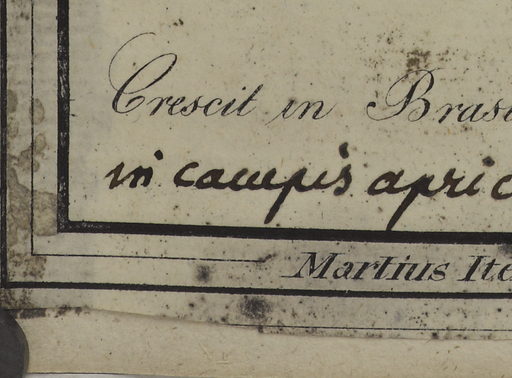 Crescit in Brasi
in campis apric
Martius Ite